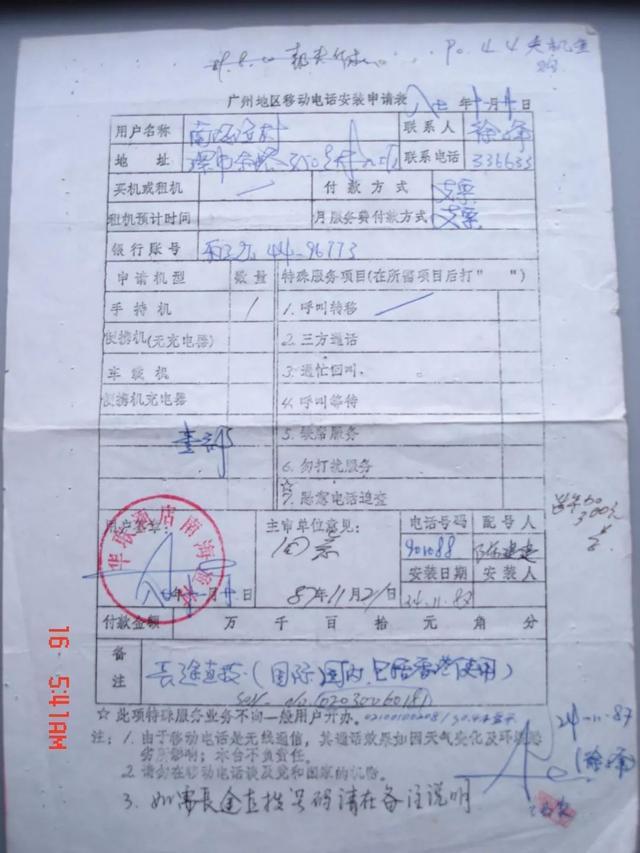 P0.44
广州地区移动电话安装申请表
年 月 日
用户名称
联系人 徐峰
地址
联系电话 336633
买机或租机
付款方式 支票
租机预计时间
月服务费付款方式 支票
银行账号 44-96773
申请机型 数量 特殊服务项目(在所需项目后打" ")
手持机 1 1. 呼叫转移
便携机(无充电器) 2. 三方通话
车载机 3. 遇忙回叫
便携机充电器 4. 呼叫等待
5. 缺席服务
6. 勿打扰服务
☆
7. 恶意电话追查
华联酒店南海渔村
用户签章:
主审单位意见: 同意
电话号码 配号人
901088
安装日期 安装人
24.11.87
87年11月21日
付款金额 万 千 百 拾 元 角 分
备注
长途直拨(国际国内,包括香港使用)
☆此项特殊服务业务不向一般用户开办.
24-11-87
(徐峰)
注: 1. 由于移动电话是无线通信,其通话效果如因天气变化及环境恶
劣所影响,本台不负责任。
2. 请勿在移动电话谈及党和国家的机密。
3. 如需长途直拨号码请在备注说明
16 5:41AM